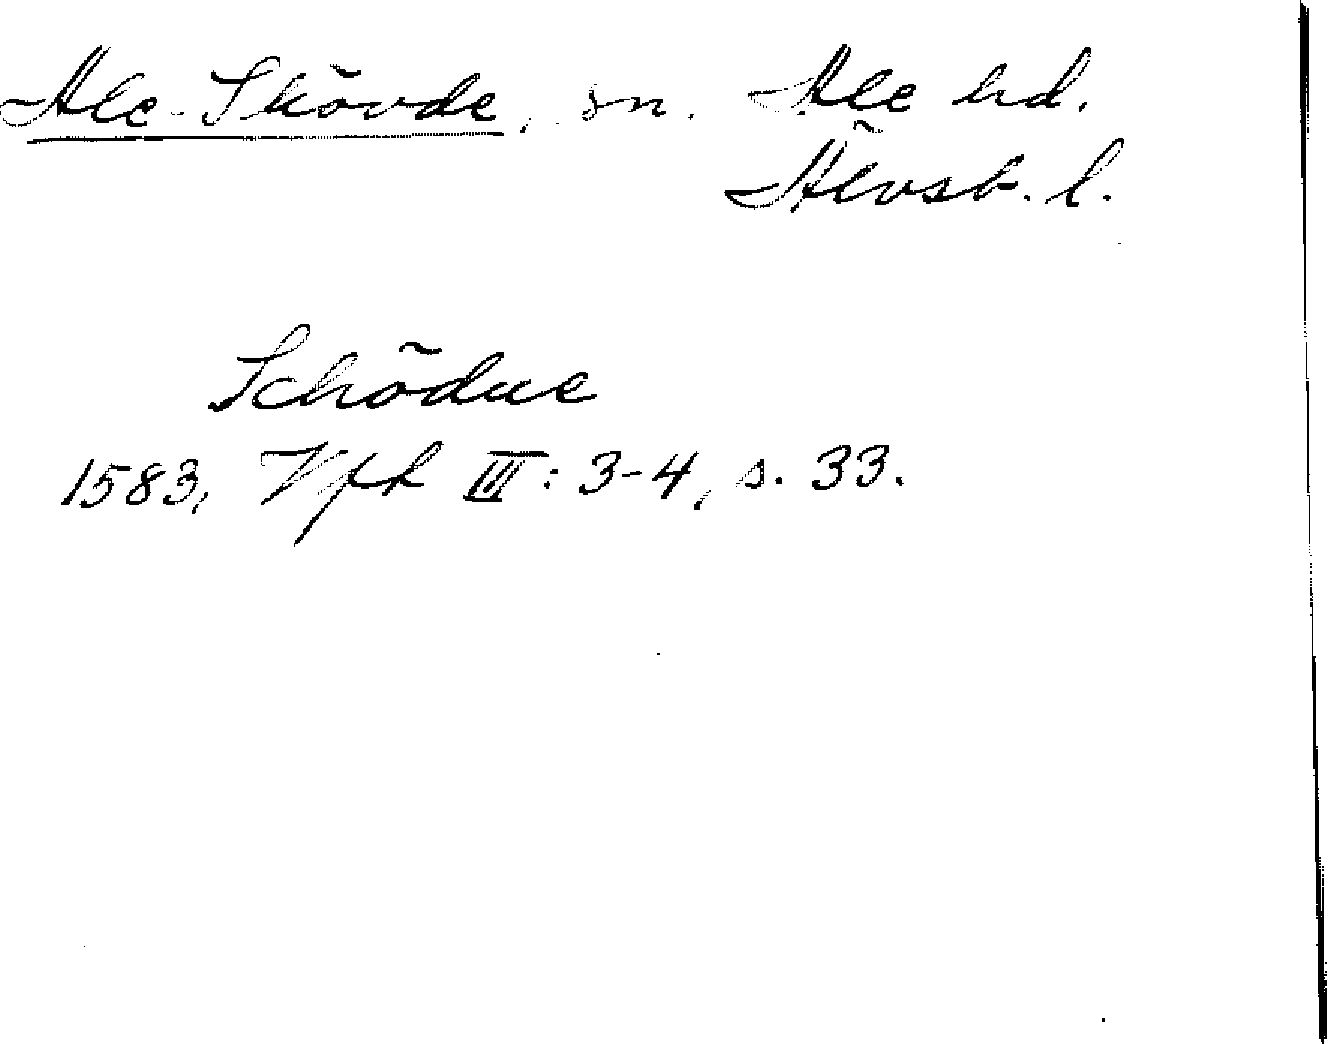 Ale-Skövde, sn. Ale hd.
Älvsb. l.
Schödue
1583, Vfh III: 3-4, s. 33.